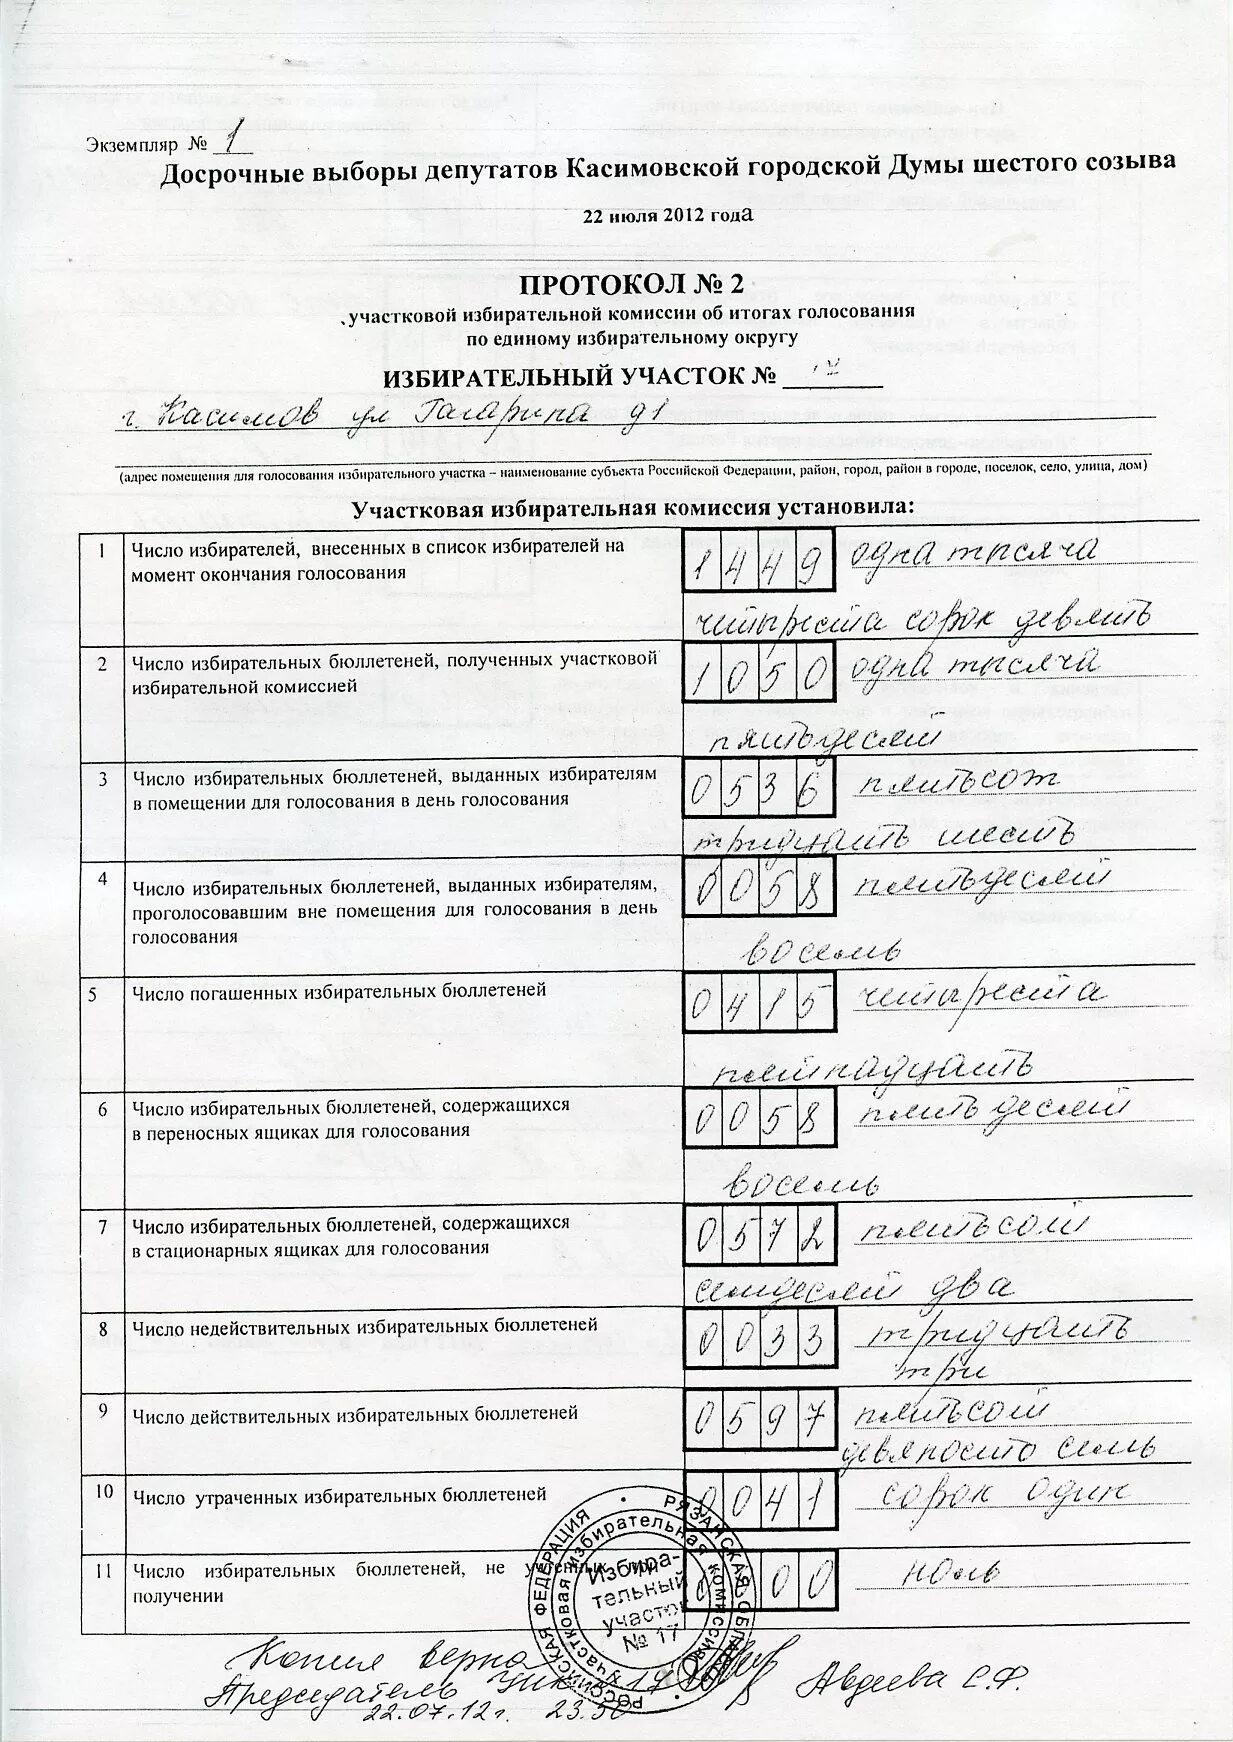 Экземпляр № 1
Досрочные выборы депутатов Касимовской городской Думы шестого созыва
22 июля 2012 года
ПРОТОКОЛ № 2
участковой избирательной комиссии об итогах голосования
по единому избирательному округу
ИЗБИРАТЕЛЬНЫЙ УЧАСТОК №
г. Касимов ул Гагарина д1
(адрес помещения для голосования избирательного участка – наименование субъекта Российской Федерации, район, город, район в городе, поселок, село, улица, дом)
Участковая избирательная комиссия установила:
1 Число избирателей, внесенных в список избирателей на 1449 одна тысяча
момент окончания голосования
четыреста сорок девять
2 Число избирательных бюллетеней, полученных участковой 1050 одна тысяча
избирательной комиссией
пятьдесят
3 Число избирательных бюллетеней, выданных избирателям 0536 пятьсот
в помещении для голосования в день голосования
тридцать шесть
4 Число избирательных бюллетеней, выданных избирателям, 0058 пятьдесят
проголосовавшим вне помещения для голосования в день
голосования
восемь
5 Число погашенных избирательных бюллетеней 0415 четыреста
пятнадцать
6 Число избирательных бюллетеней, содержащихся 0058 пятьдесят
в переносных ящиках для голосования
восемь
7 Число избирательных бюллетеней, содержащихся 0572 пятьсот
в стационарных ящиках для голосования
семдесят два
8 Число недействительных избирательных бюллетеней 0033 тридцать
три
9 Число действительных избирательных бюллетеней 0597 пятьсот
девяносто семь
10 Число утраченных избирательных бюллетеней 0041 сорок один
11 Число избирательных бюллетеней, не учтенных при 0000 ноль
получении
РОССИЙСКАЯ ФЕДЕРАЦИЯ • РЯЗАНСКАЯ ОБЛАСТЬ
Участковая избирательная комиссия
Избира-
тельный
участок
№ 17
Копия верна
Председатель УИК 17 Авдеева С.Ф.
22.07.12г. 23.50